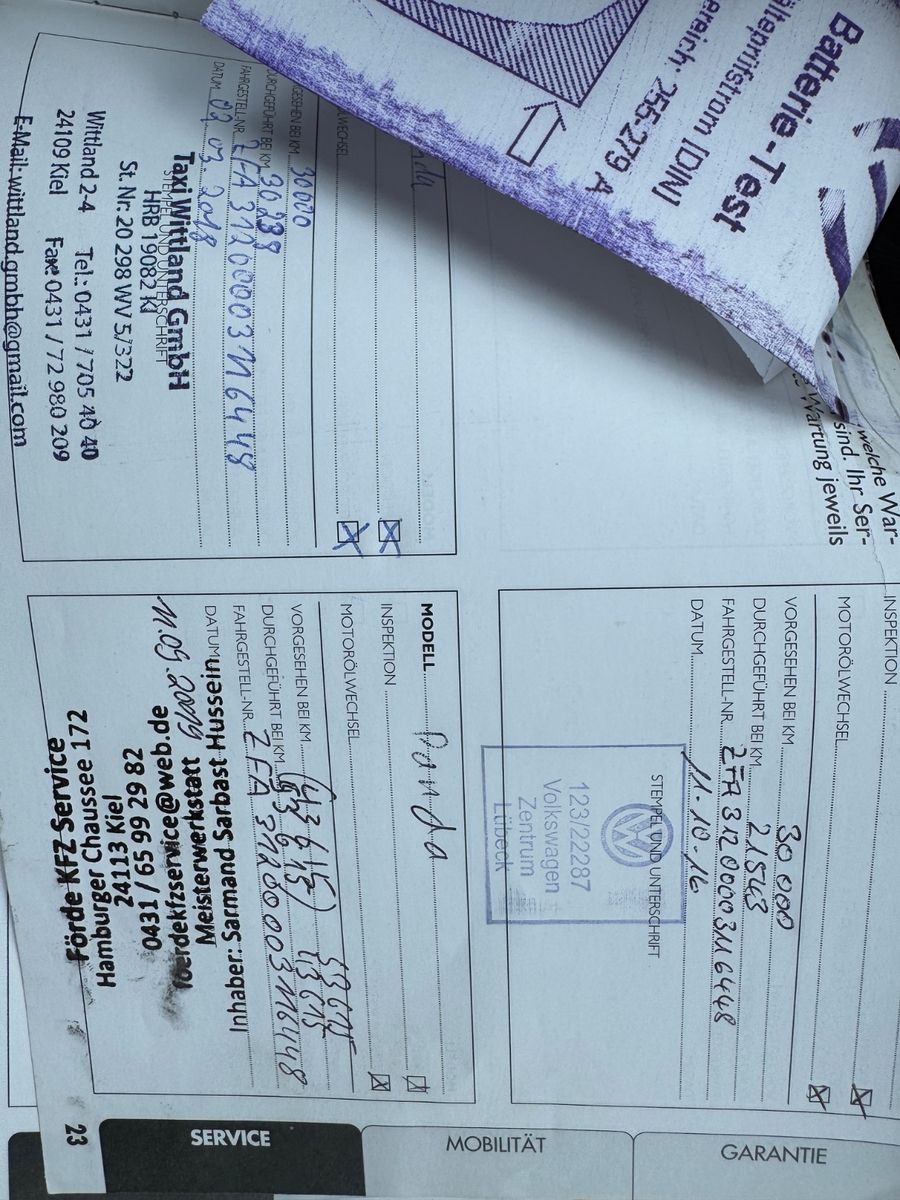 Batterie-Test
Kälteprüfstrom [DIN]
ereich: 255-279 A
welche War-
sind. Ihr Ser-
Wartung jeweils
INSPEKTION
MOTORÖLWECHSEL
VORGESEHEN BEI KM 30 000
DURCHGEFÜHRT BEI KM 21543
FAHRGESTELL-NR. ZFA31200003116448
DATUM 11-10-16
STEMPEL UND UNTERSCHRIFT
123/2287
Volkswagen
Zentrum
Lübeck
nda
LWECHSEL
GESEHEN BEI KM 30000
DURCHGEFÜHRT BEI KM 30 239
FAHRGESTELL-NR. ZFA31200003116448
DATUM 02.03.2018
STEMPEL UND UNTERSCHRIFT
Taxi Wittland GmbH
HRB 19082 KI
St. Nr. 20 298 WV 5/322
Wittland 2-4 Tel.: 0431 / 705 40 40
24109 Kiel Fax: 0431 / 72 980 209
E-Mail: wittland.gmbh@gmail.com
MODELL Panda
INSPEKTION
MOTORÖLWECHSEL
VORGESEHEN BEI KM
DURCHGEFÜHRT BEI KM 43615
FAHRGESTELL-NR. ZFA31200003116448
DATUM 11.09.2019
Inhaber: Sarmand Sarbast Hussein
Meisterwerkstatt
foerdekfzservice@web.de
0431 / 65 99 29 82
24113 Kiel
Hamburger Chaussee 172
Förde KFZ Service
23
SERVICE
MOBILITÄT
GARANTIE